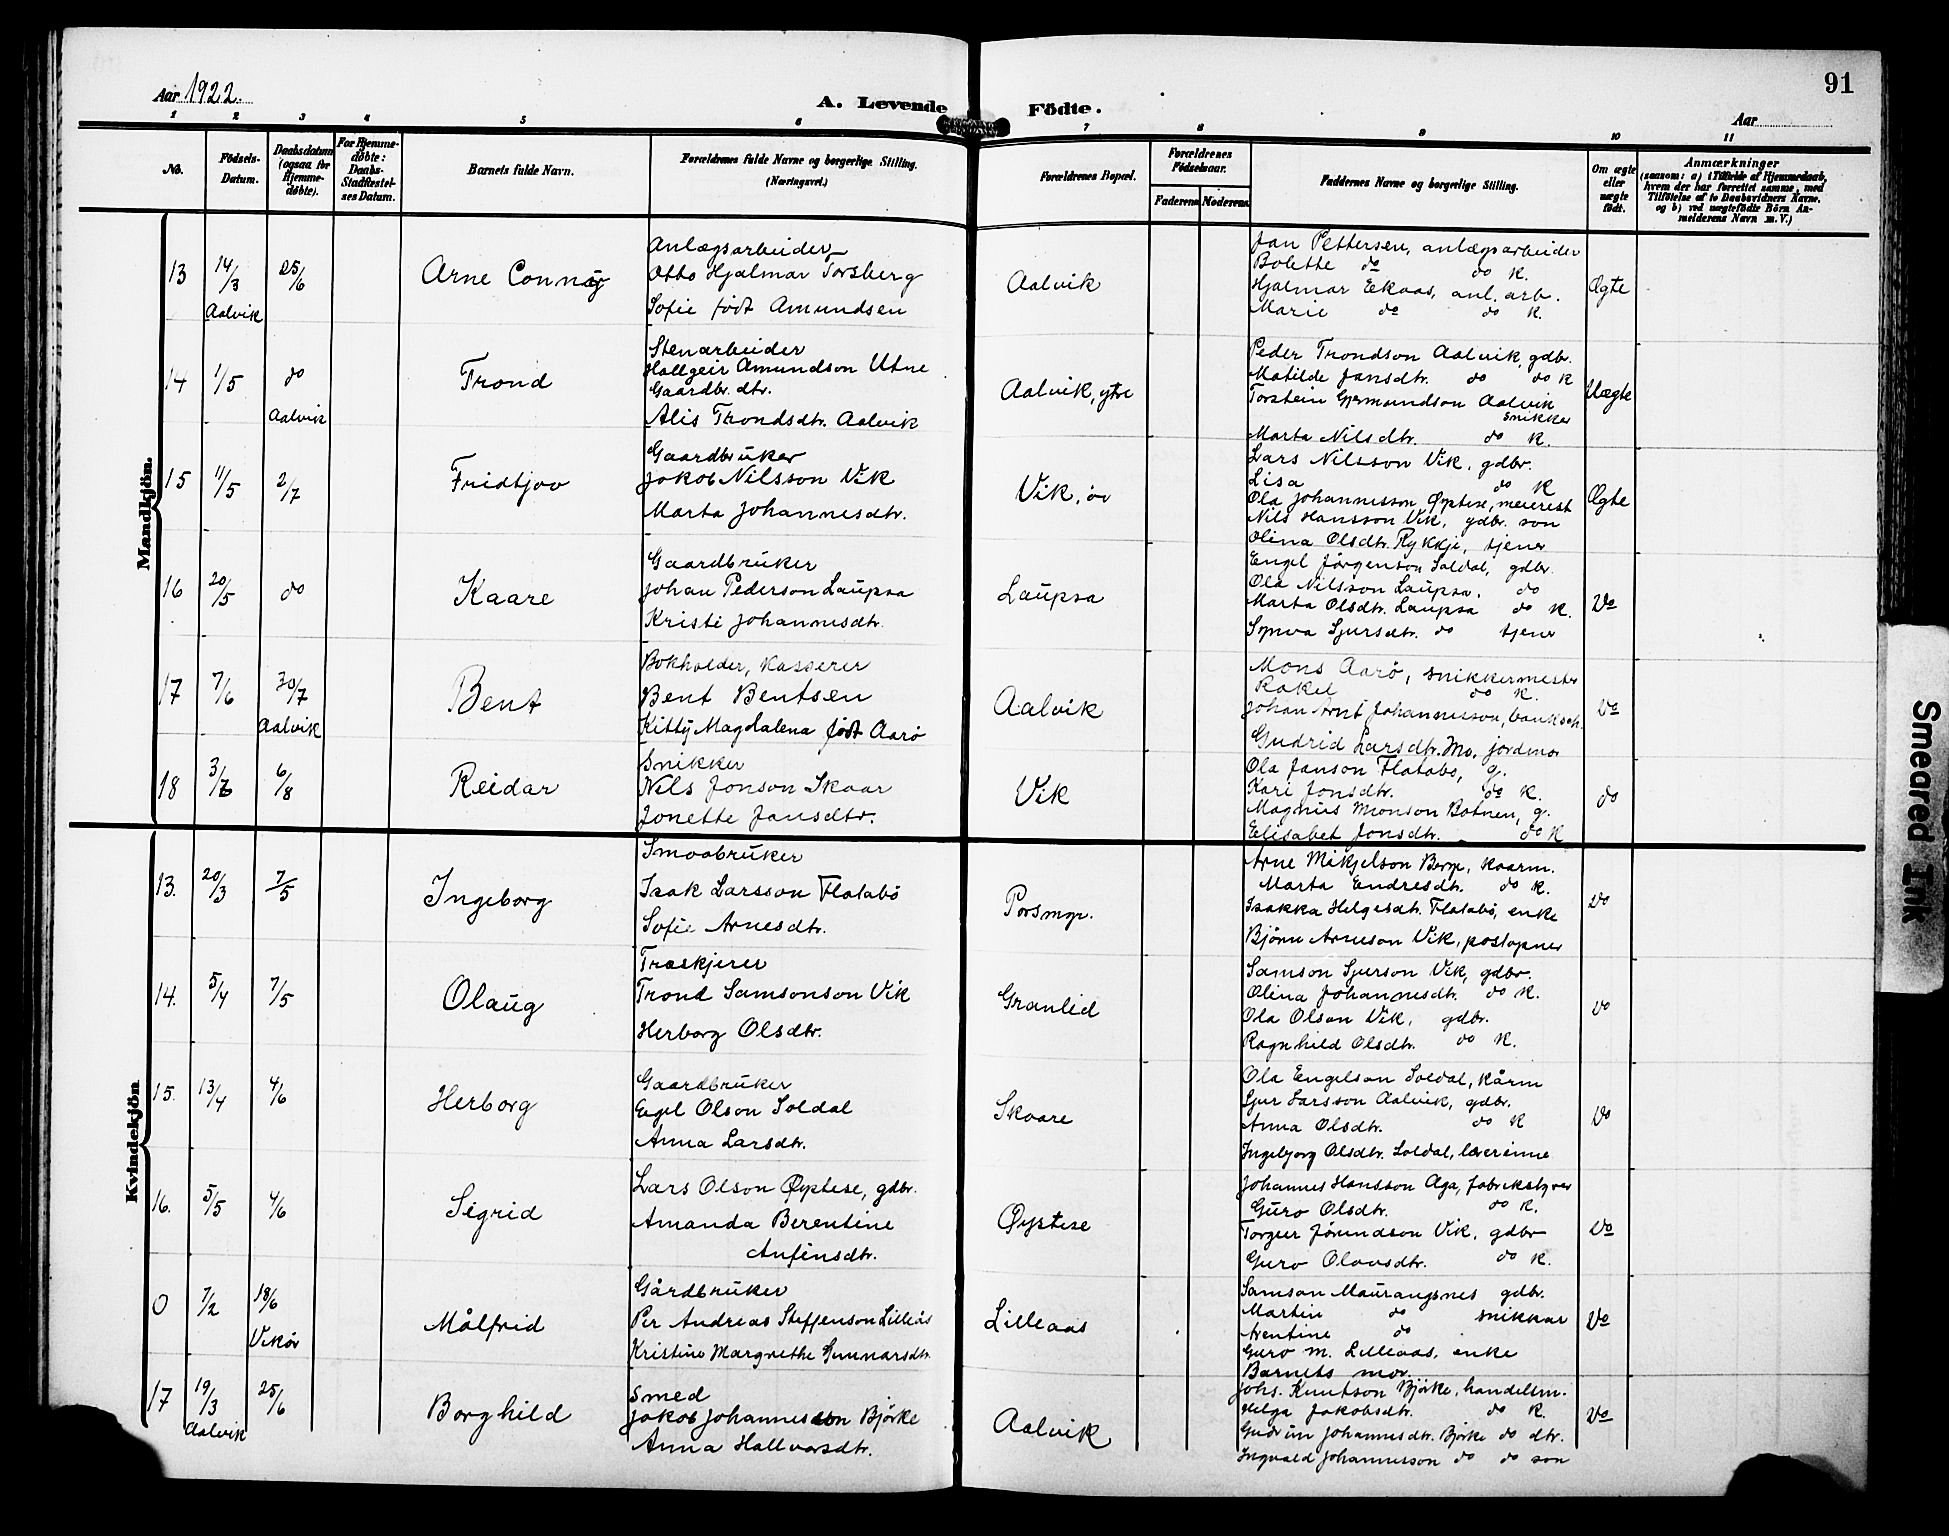 91
Aar 1922.
A. Levende Födte.
Aar
1 2 3 4 5 6 7 8 9 10 11
No.
Födsels-Datum.
Daabsdatum (ogsaa for Hjemme-döbte).
For Hjemme-döbte: Daabs-Stadfæstel-ses Datum.
Barnets fulde Navn.
Forældrenes fulde Navne og borgerlige Stilling. (Næringsvei.)
Forældrenes Bopæl.
Forældrenes Födselsaar.
Faderens Moderens
Faddernes Navne og borgerlige Stilling.
Om ægte eller uægte födt.
Anmærkninger
(saasom: a) i Tilfælde af Hjemmedaab, hvem der har forrettet samme, med Tilföielse af to Daabsvidners Navne. og b) ved uægtefödte Börn An-melderens Navn m. V.)
Mandkjön.
13 14/3 Aalvik 25/6 Arne Conn
Anlægsarbeider
Otto Hjalmar Torsberg
Sofie født Amundsen
Aalvik
Jan Pettersen, anlægsarbeider
Bolette do do K.
Hjalmar Ekaas, anl. arb.
Marie do do K.
Ægte
14 1/5 do Aalvik Trond
Stenarbeider
Hallgeir Amundson Utne
Gaardbr. dtr.
Alis Trondsdtr. Aalvik
Aalvik, ytre
Peder Trondson Aalvik, gdbr.
Matilde Jansdtr. do do K
Torstein Gjermundson Aalvik
snikker
Marta Nilsdtr. do K.
Uægte
15 11/5 2/7 Fridtjov
Gaardbruker
Jakob Nilsson Vik
Marta Johannesdtr.
Vik, öv
Lars Nilsson Vik, gdbr.
Lisa do K
Ola Johannesson Øystese, meierest
Nils Hansson Vik, gdbr. son
Olina Olsdtr. Rykkje, tjener
Ægte
16 20/5 do Kaare
Gaardbruker
Johan Pederson Laupsa
Kristi Johannesdtr.
Laupsa
Engel Jørgenson Soldal, gdbr.
Ola Nilsson Laupsa, do
Marta Olsdtr. Laupsa do K.
Synva Sjursdtr. do tjener
Do
17 7/6 30/7 Aalvik Bent
Bokholder, kasserer
Bent Bentsen
Kitty Magdalena født Aarö
Aalvik
Mons Aarö, snikkermester
Rakel do K.
Johan Arnt Johannesson,
Gudrid Larsdtr. Mo, jordmor
Do
18 3/7 6/8 Reidar
Snikker
Nils Jonson Skaar
Jonette Jansdtr.
Vik
Ola Janson Flatabö, g.
Kari Jonsdtr. do K.
Magnus Monson Botnen, g.
Elisabet Jonsdtr. do K
do
Kvindekjön
13. 20/3 7/5 Ingeborg
Smaabruker
Isak Larsson Flatabö
Sofie Arnesdtr.
Porsmyr.
Arne Mikjelson Berge, kaarm.
Marta Endresdtr. do K.
Isakka Helgesdtr. Flatabö, enke
Björn Arneson Vik, postopner
Do
14. 5/4 7/5 Olaug
Træskjerer
Trond Samsonson Vik
Herborg Olsdtr.
Granlid
Samson Sjurson Vik, gdbr.
Olina Johannesdtr. do K.
Ola Olson Vik, gdbr.
Ragnhild Olsdtr. do K.
Do
15. 13/4 4/6 Herborg
Gaardbruker
Engel Olson Soldal
Anna Larsdtr.
Skaare
Ola Engelson Soldal, kårm
Sjur Larsson Aalvik, gdbr.
Anna Olsdtr. do K
Ingebjorg Olsdtr. Soldal, lærerinne
Do
16. 5/5 4/6 Sigrid
Lars Olson Øystese, gdbr.
Amanda Berentine
Anfinsdtr.
Øystese
Johannes Hansson Aga, fabrikstyrer
Guro Olsdtr. do K.
Torgeir Jörundson Vik, gdbr
Guro Olavsdtr. do K.
Do
0 7/2 18/6 Vikör Målfrid
Gårdbruker
Per Andreas Steffenson Lilleås
Kristine Margrethe Gunnarsdtr.
Lilleaas
Samson Maurangsnes gdbr.
Martin do snikkar
Arentine do
Guro M. Lilleaas, enke
Barnets mor.
Do
17 19/3 Aalvik 25/6 Borghild
Smed
Jakob Johannesson Bjørke
Anna Hallvarsdtr.
Aalvik
Johs. Knutson Bjørke, handelsm.
Helga Jakobsdtr. do K.
Gudrun Johannesdtr. Bjørke do dtr.
Ingvald Johannesson do do son
Do
Smeared Ink